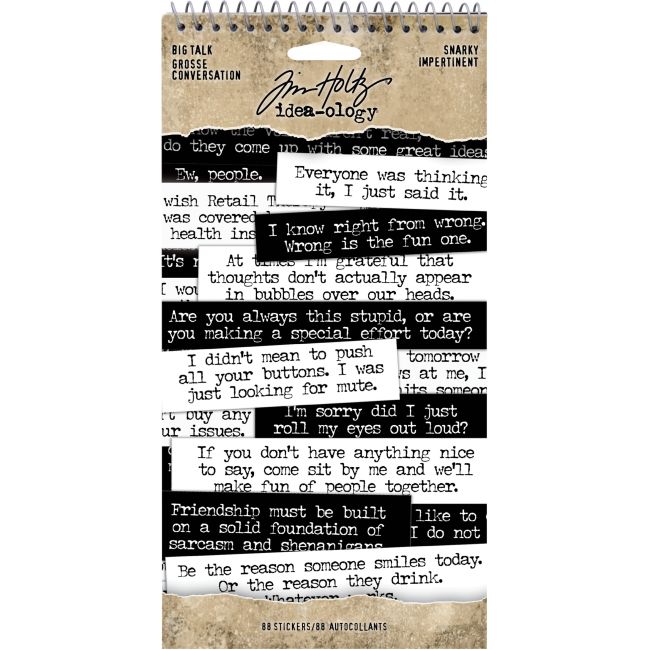 BIG TALK
GROSSE
CONVERSATION
SNARKY
IMPERTINENT
Tim Holtz
idea-ology
do they come up with some great ideas
Ew, people.
Everyone was thinking
it, I just said it.
wish Retail
was covered
health ins
I know right from wrong.
Wrong is the fun one.
It's
At times I'm grateful that
thoughts don't actually appear
in bubbles over our heads.
I wou
Are you always this stupid, or are
you making a special effort today?
I didn't mean to push
all your buttons. I was
just looking for mute.
tomorrow
s at me, I
someon
t buy any
ur issues.
I'm sorry did I just
roll my eyes out loud?
If you don't have anything nice
to say, come sit by me and we'll
make fun of people together.
Friendship must be built
on a solid foundation of
sarcasm and shenanigans
like to
I do not
Be the reason someone smiles today.
Or the reason they drink.
Whatever works.
88 STICKERS/88 AUTOCOLLANTS